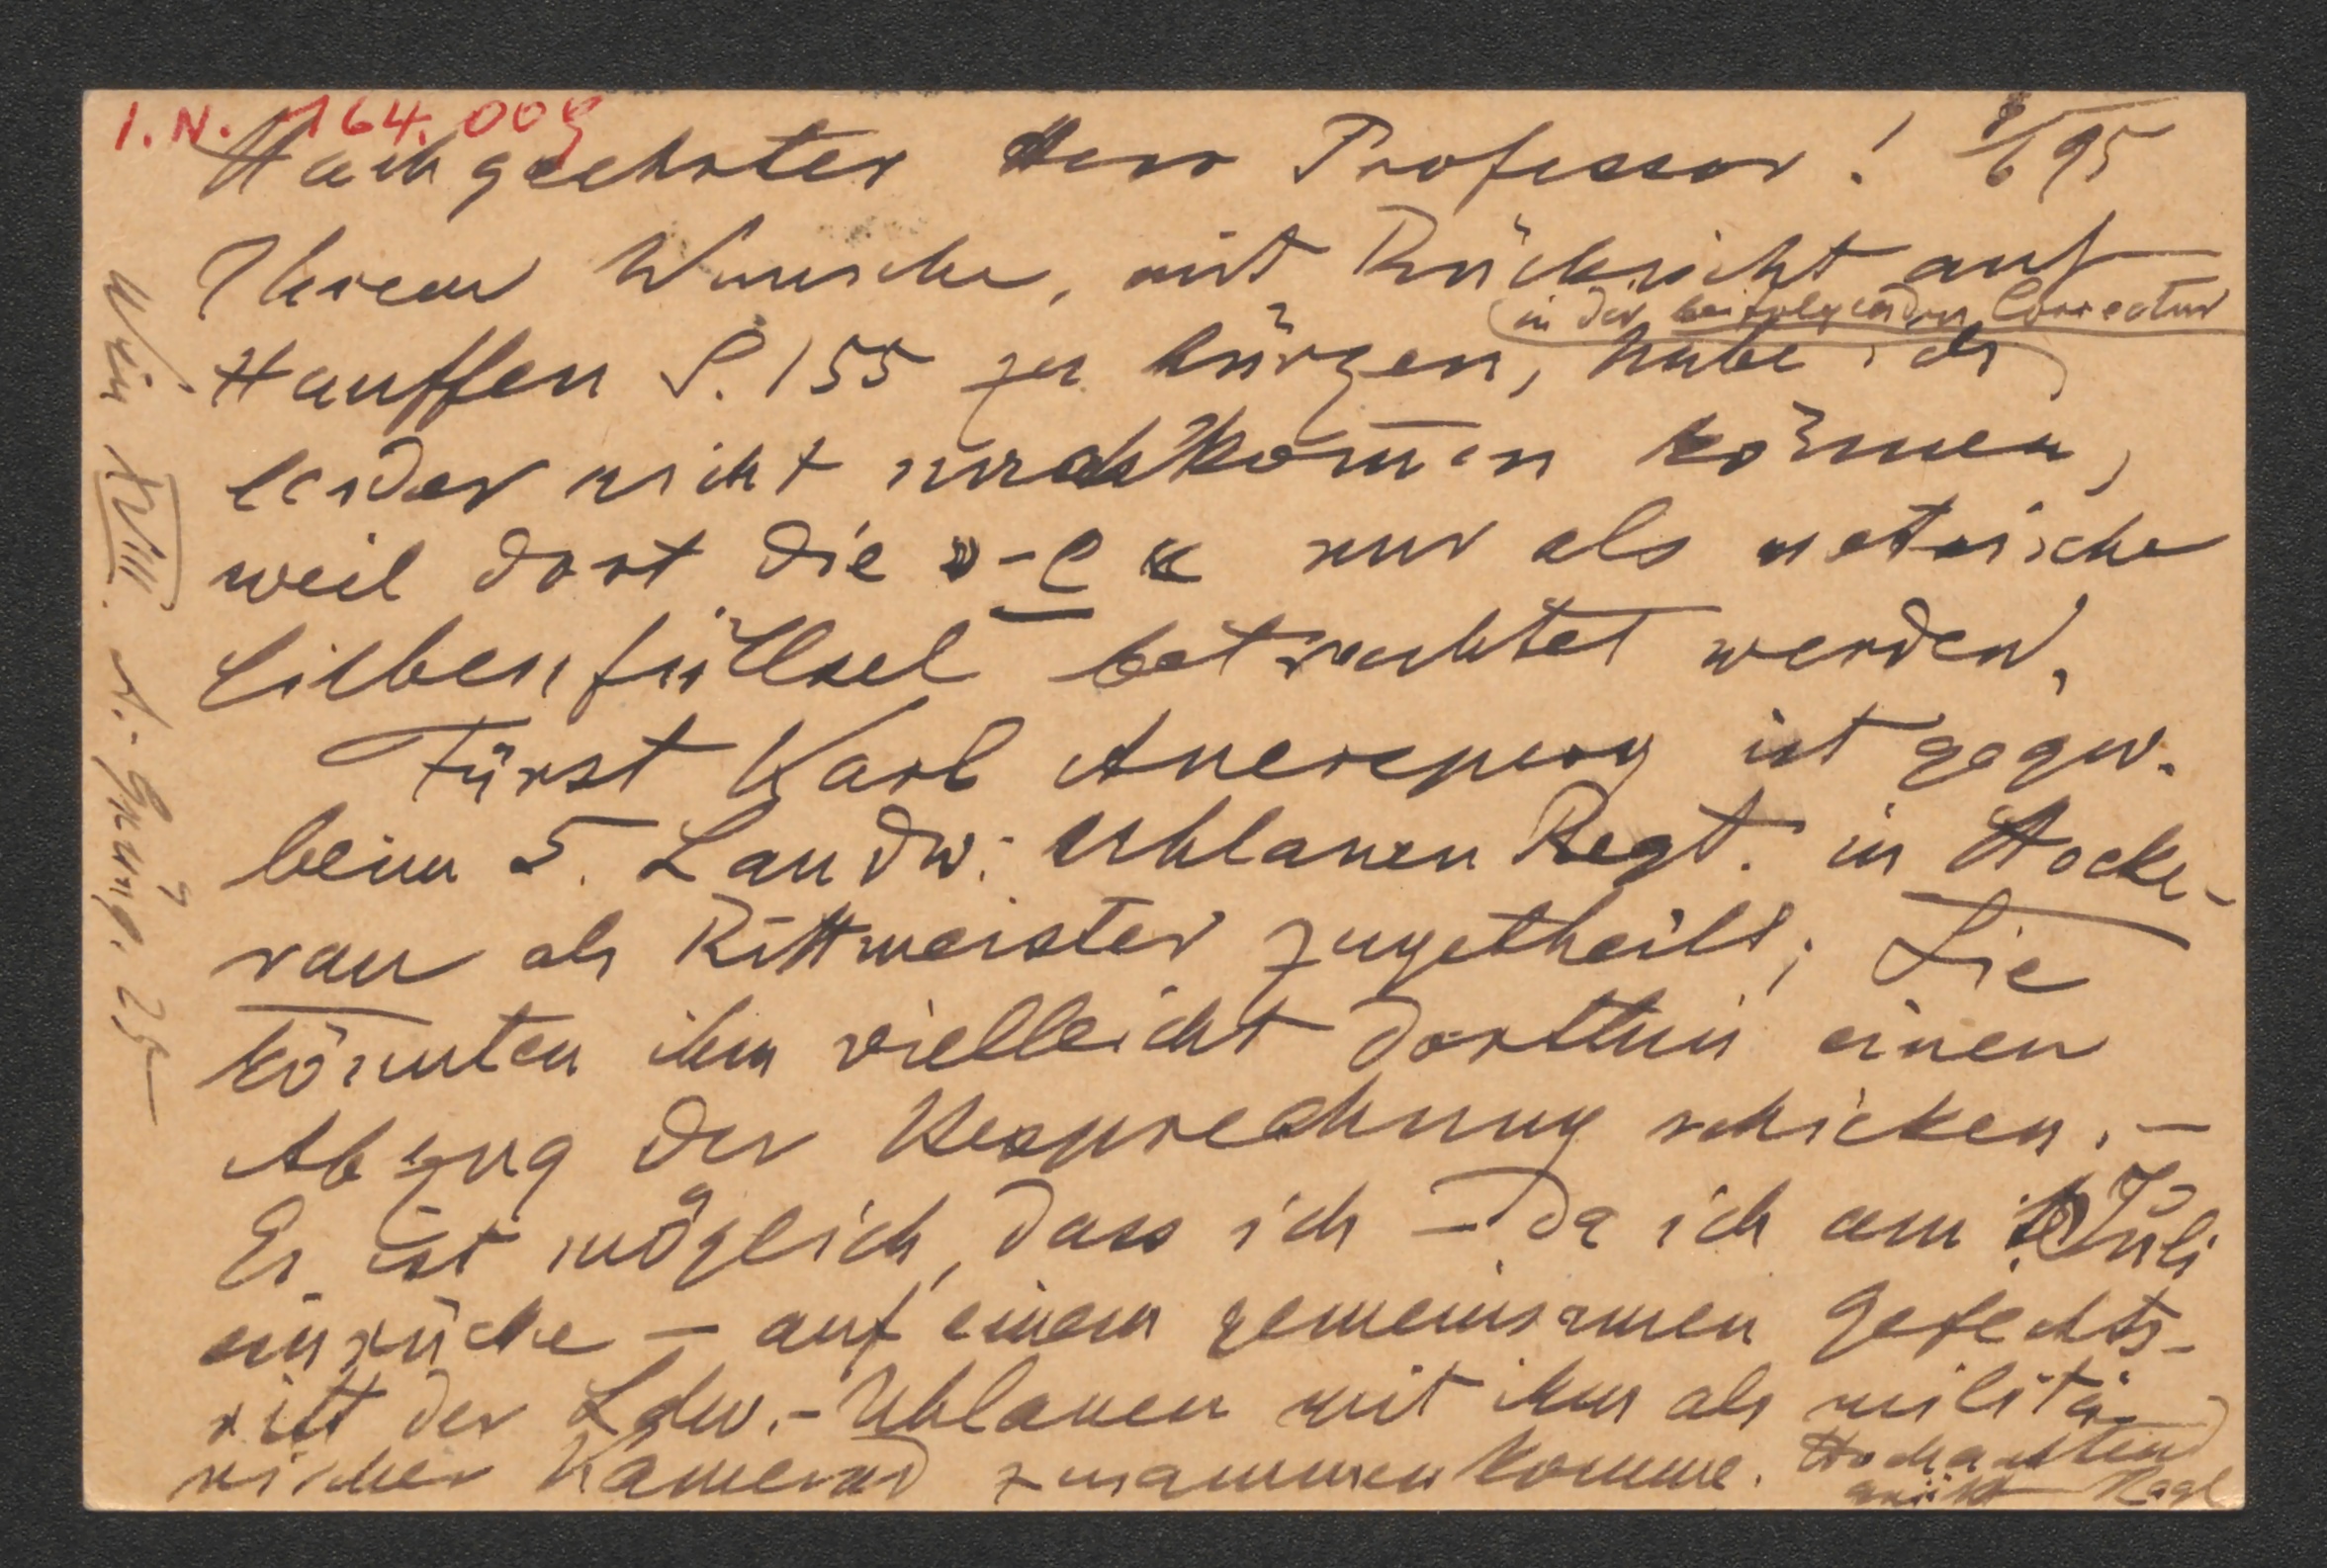 I.N. 164.009
Hochgeehrter Herr Professor! 8/6 95
Ihrem Wunsche, mit Rücksicht auf
(in der beifolgenden Correctur
Hauffen S. 155 zu kürzen, habe ich
leider nicht nachkom̄en können,
weil dort die »-e« nur als metrische
Silbenfüllsel betrachtet werden.
Fürst Karl Auersperg ist gegw.
beim 5. Landw: Uhlanen Regt. in Stocke-
rau als Rittmeister zugetheilt; Sie
könnten ihm vielleicht dorthin einen
Abzug der Besprechung schicken. –
Es ist möglich, dass ich – da ich am Juli
einrücke – auf einem gemeinsamen Gefechts-
ritt der Ldw.-Uhlanen mit ihm als militä-
rischer Kamerad zusammenkomme. Hochachtend
grüßt Nagl
Wien XVIII. A. Grüng. 25